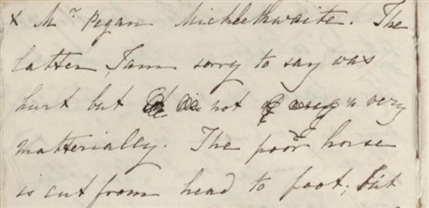 x Mr Pegan Micklethwaite. The
latter, I am sorry to say was
hurt but not very
materially. The poor horse
is cut from head to foot; but